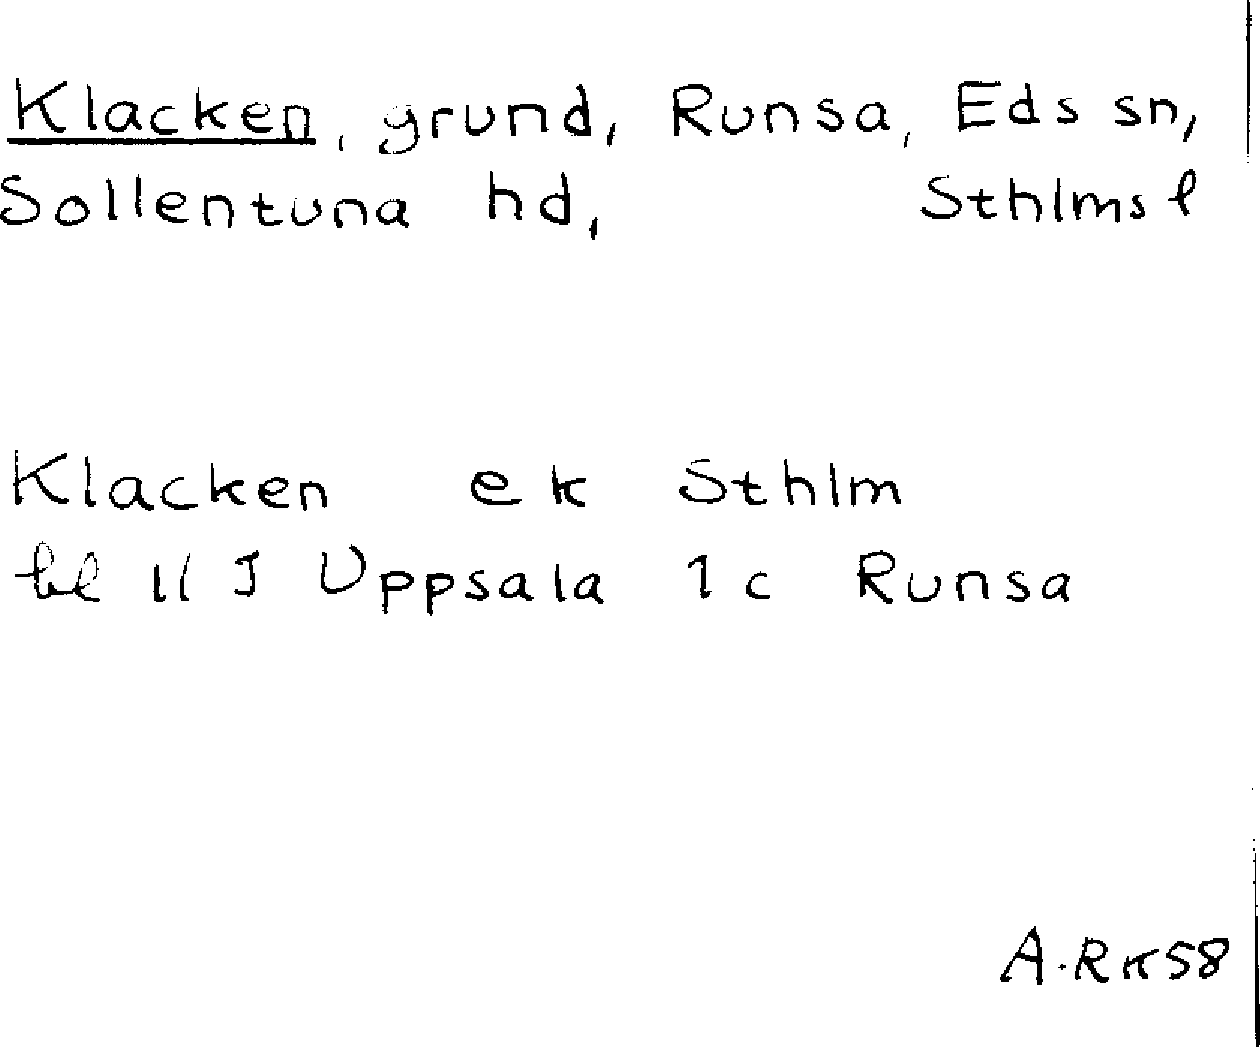 Klacken, grund, Runsa, Eds sn,
Sollentuna hd, Sthlms l
Klacken ek Sthlm
bl 11 J Uppsala 1c Runsa
A.RK58